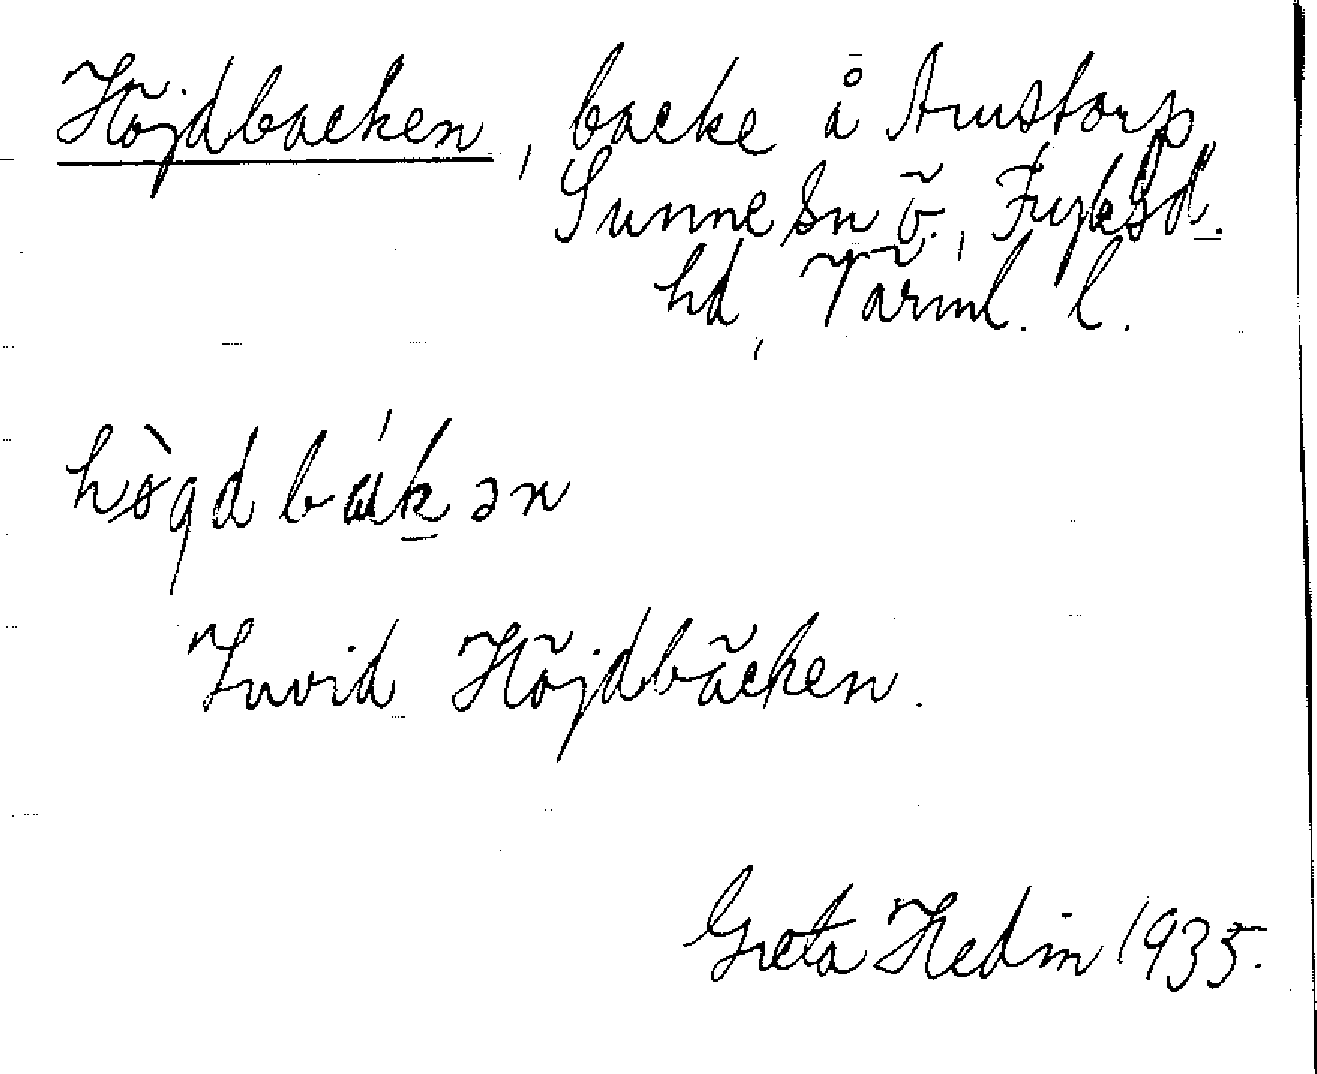 Höjdbacken, backe å Arnstorp,
Sunne sn ö., Fryksd.
hd, Värml. l.
hø̀gdbákən
Invid Höjdbäcken.
Greta Hedin 1935.